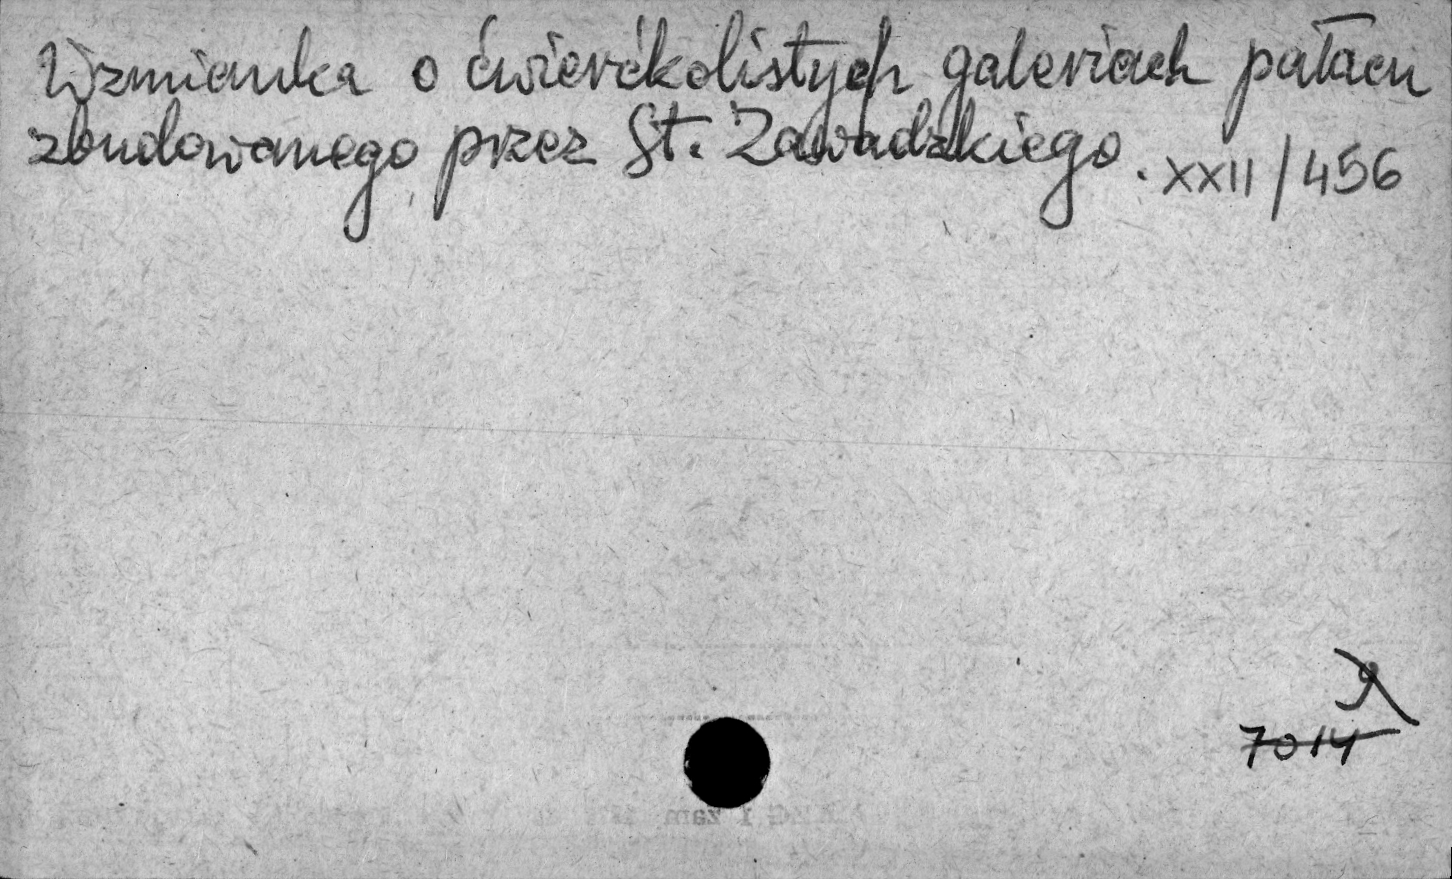 Wzmianka o ćwierćkolistych galeriach pałacu
zbudowanego przez St. Zawadzkiego. XXII/456
9
7014